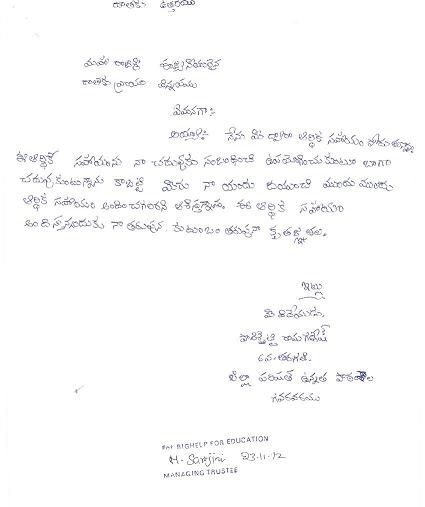 దాతకు ఉత్తరము
మహా రాజశ్రీ పూజ్యనీయులైన
దాతకు వ్రాయు విన్నపము
ఏమనగా:-
అయ్యా:- నేను మీ ద్వారా ఆర్థిక సహాయం పొందుతున్నాను
ఈ ఆర్థిక సహాయమును నా చదువుకు సంబంధించి ఉపయోగించుకుంటూ బాగా
చదువుకుంటున్నాను కాబట్టి మీరు నా యందు దయుంచి ముందు ముందు
ఆర్థిక సహాయం అందించగలరని ఆశిస్తున్నాను. ఈ ఆర్థిక సహాయం
అందిస్తున్నందుకు నా తరుపున, కుటుంబం తరుపున కృతజ్ఞతలు.
ఇట్లు
మీ విధేయుడు,
రామగణేష్
6వ.తరగతి.
జిల్లా పరిషత్ ఉన్నత పాఠశాల
గవరవరము
For BIGHELP FOR EDUCATION
M. Sarojini 23-11-12
MANAGING TRUSTEE